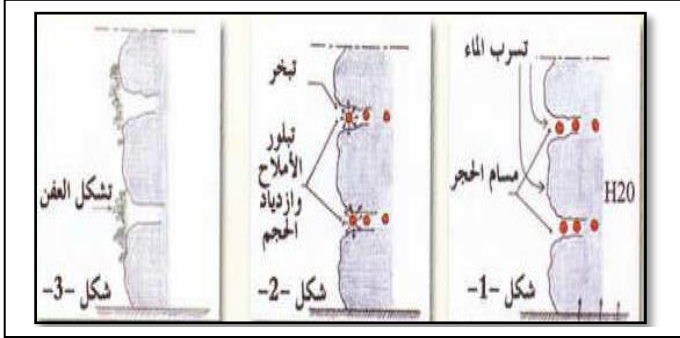 تسرب الماء
مسام الحجر
H20
شكل -1-
تبخر
تبلور
الأملاح
وازدياد
الحجم
شكل -2-
تشكل العفن
شكل -3-